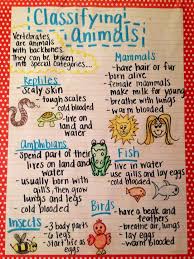 Classifying
Animals
Vertebrates
are animals
with backbones.
They can be broken
into special categories...
Reptiles
- scaly skin
- tough scales
- cold blooded
- live on
land and
water
Mammals
- have hair or fur
- born alive
- female mammals
make milk for young
- breathe with lungs
- warm blooded
Amphibians
- Spend part of their
lives on land and
water
- usually born with
gills, then grow
lungs and legs
- cold blooded
Fish
- live in water
- use gills and lay eggs
- cold blooded
Birds
- have a beak and
feathers
- breathe air/lungs
- lay eggs
- warm blooded
Insects
- 3 body parts
- 6 legs
- Start life as
eggs